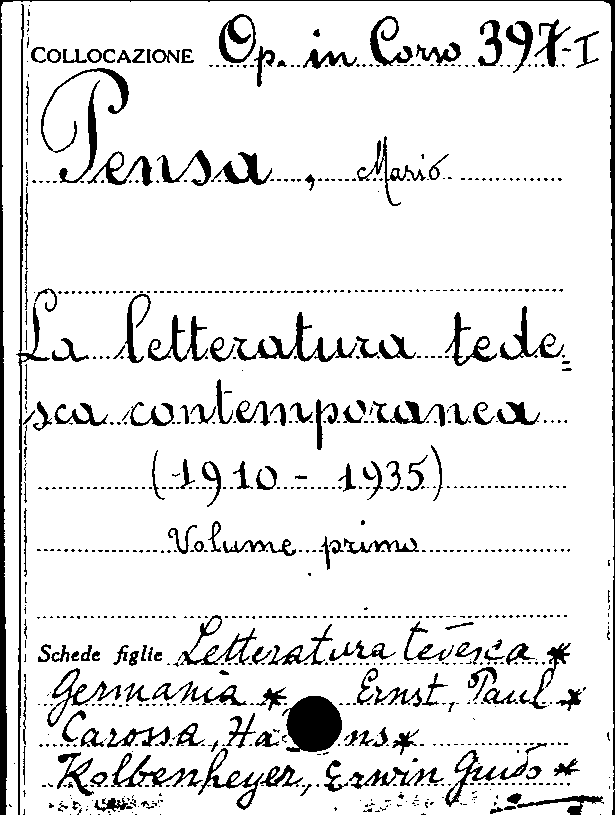 COLLOCAZIONE Op. in Corso 397-I
Pensa, Mario
La letteratura tede=
sca contemporanea
(1910 - 1935)
Volume primo
Schede figlie Letteratura tedesca *
Germania * Ernst, Paul *
Carossa, Hans *
Kolbenheyer, Erwin Guido *